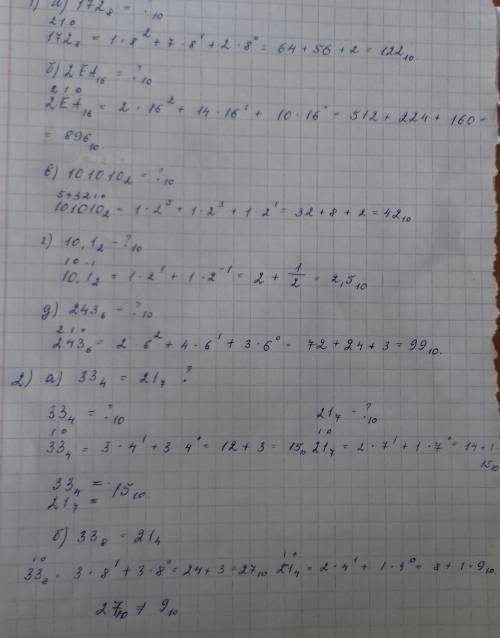 1) а) 172₈ = ?₁₀
2 1 0
172₈ = 1 · 8² + 7 · 8¹ + 2 · 8⁰ = 64 + 56 + 2 = 122₁₀
б) 2EA₁₆ = ?₁₀
2 1 0
2EA₁₆ = 2 · 16² + 14 · 16¹ + 10 · 16⁰ = 512 + 224 + 160 =
= 896₁₀.
в) 101010₂ = ?₁₀
5 4 3 2 1 0
101010₂ = 1 · 2⁵ + 1 · 2³ + 1 · 2¹ = 32 + 8 + 2 = 42₁₀
г) 10,1₂ - ?₁₀
1 0 -1
10,1₂ = 1 · 2¹ + 1 · 2⁻¹ = 2 + 1/2 = 2,5₁₀
д) 243₆ - ?₁₀
2 1 0
243₆ = 2 · 6² + 4 · 6¹ + 3 · 6⁰ = 72 + 24 + 3 = 99₁₀.
2) а) 33₄ = 21₇ ?
33₄ = ?₁₀ 21₇ - ?₁₀
1 0 1 0
33₄ = 3 · 4¹ + 3 · 4⁰ = 12 + 3 = 15₁₀ 21₇ = 2 · 7¹ + 1 · 7⁰ = 14 + 1
15₁₀
33₄ = 15₁₀.
21₇ =
б) 33₈ = 21₄
1 0 1 0
33₈ = 3 · 8¹ + 3 · 8⁰ = 24 + 3 = 27₁₀ 21₄ = 2 · 4¹ + 1 · 4⁰ = 8 + 1 = 9₁₀.
27₁₀ ≠ 9₁₀